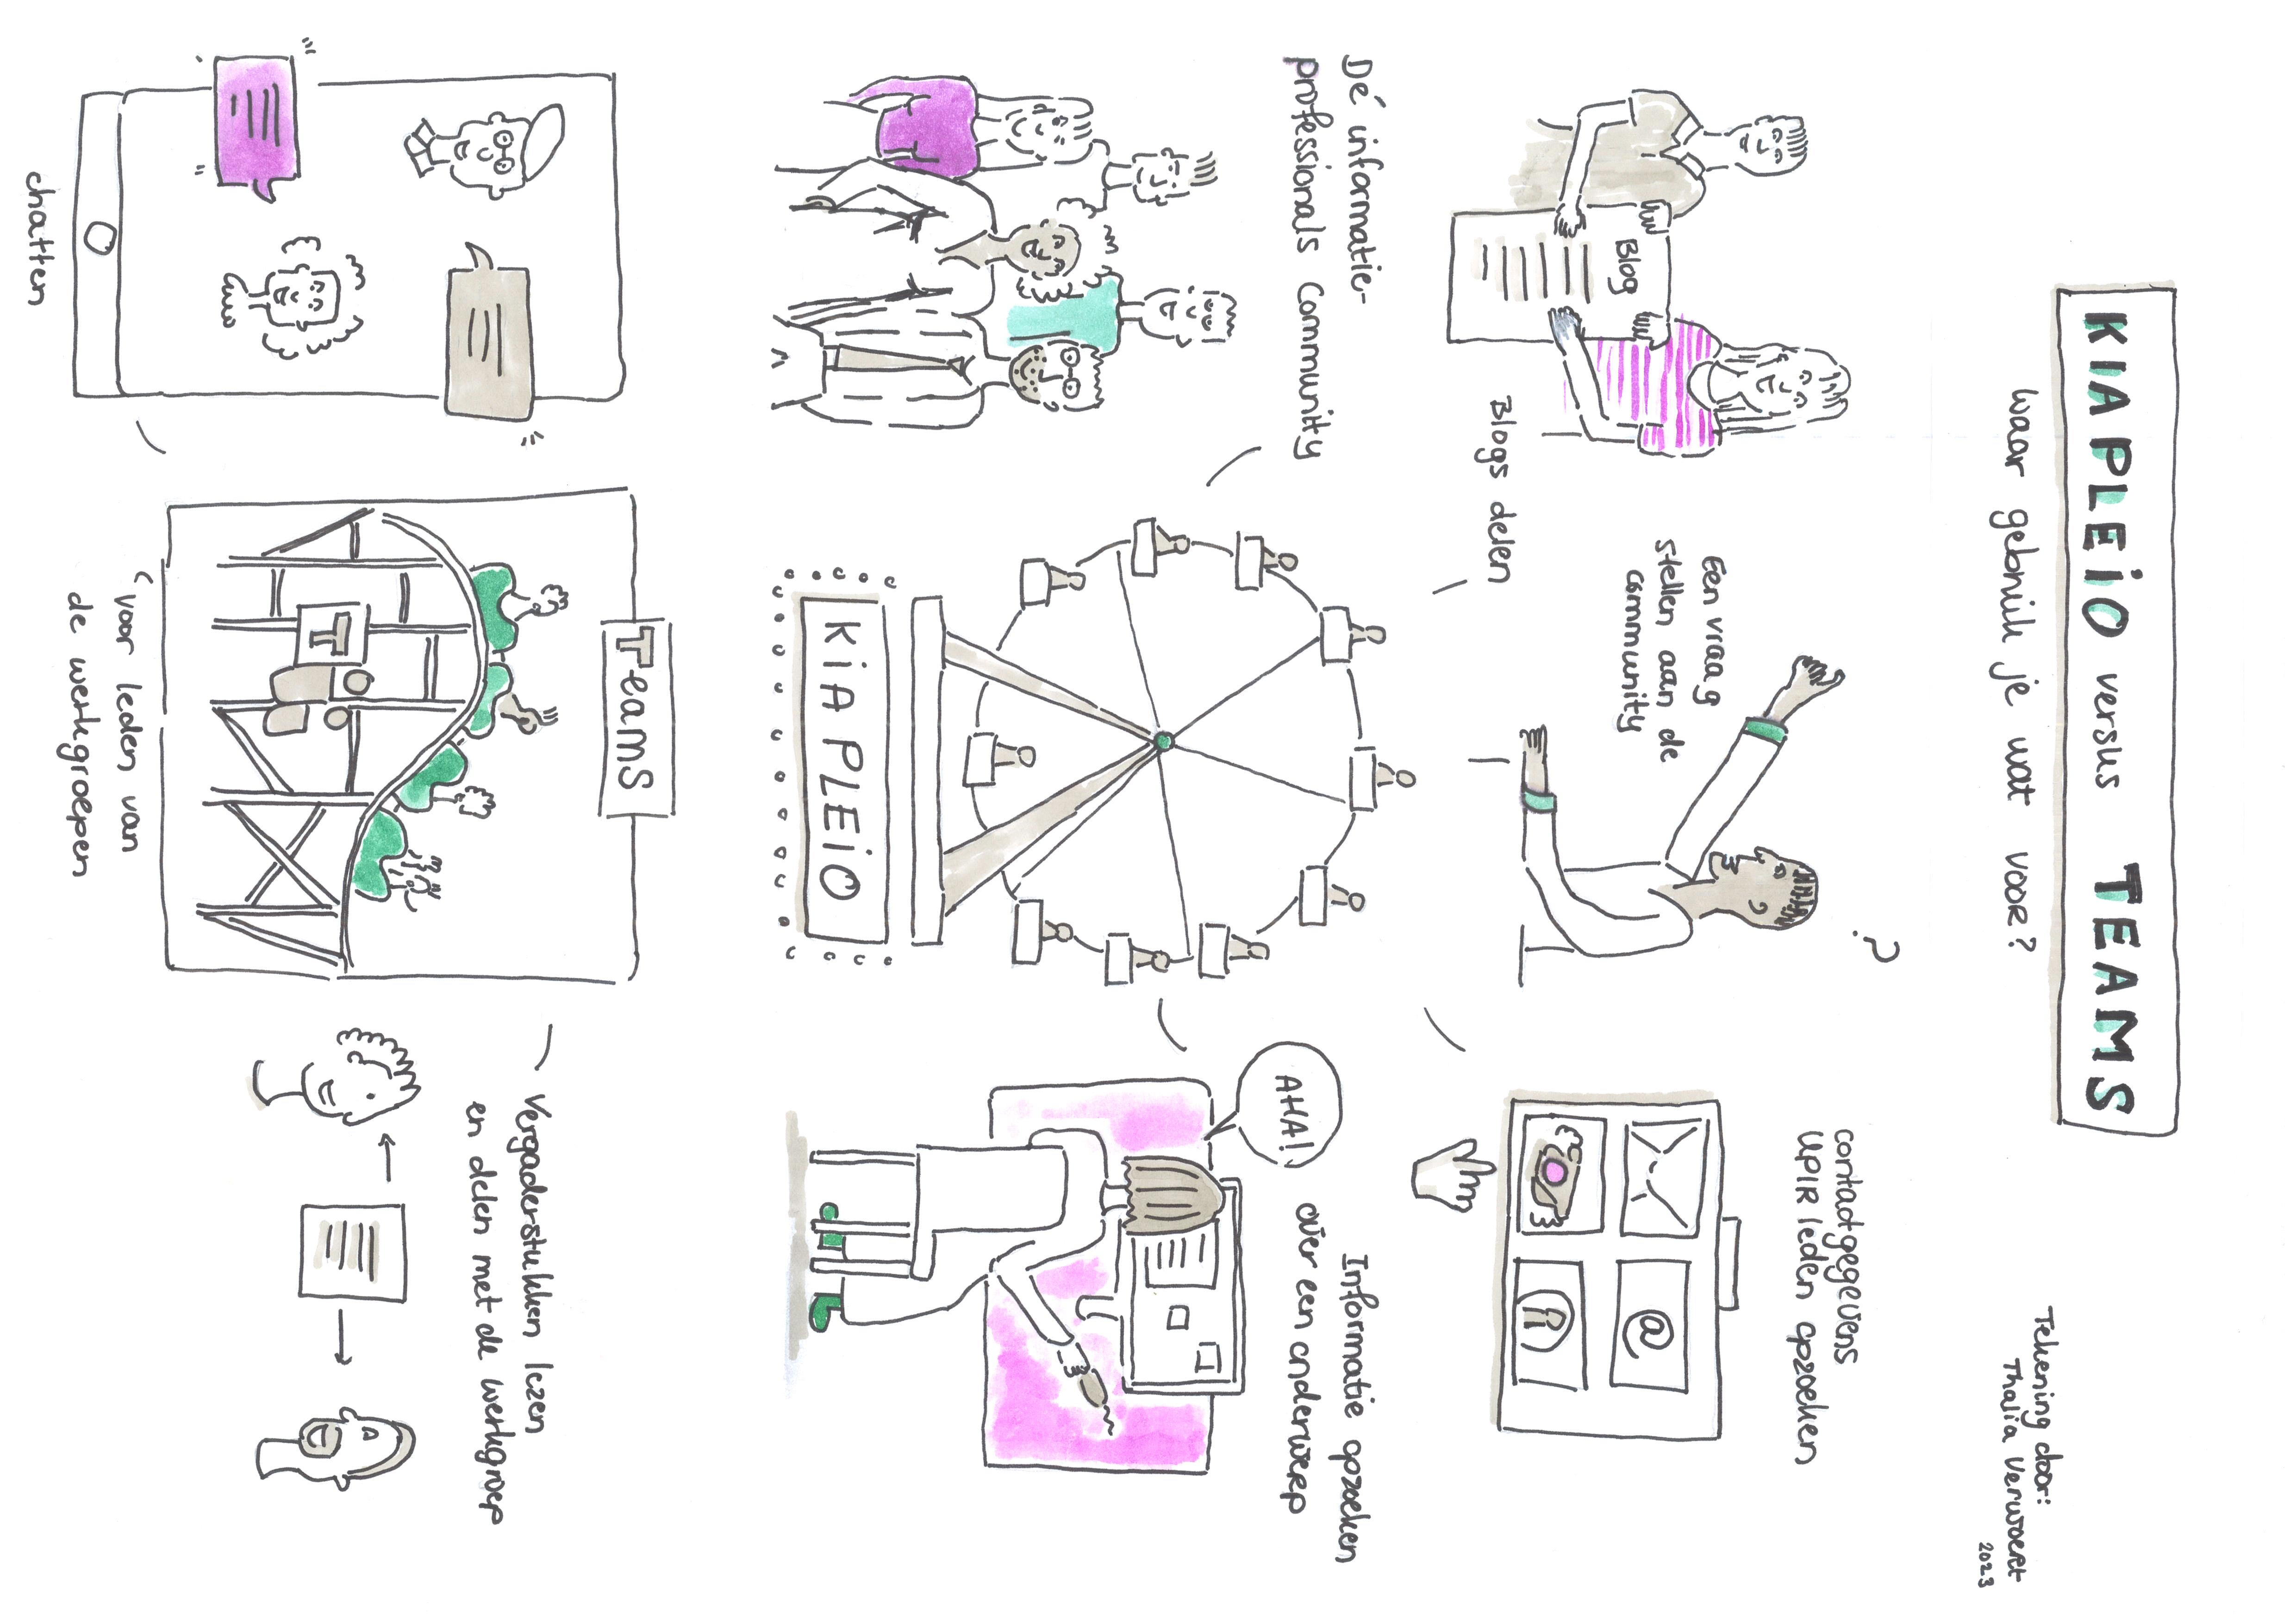 KIA PLEIO versus TEAMS
waar gebruik je wat voor?
Tekening door:
Thalia Verwoert
2023
Blog
Blogs delen
?
Een vraag
stellen aan de
community
contactgegevens
UPIR leden opzoeken
@
Dé informatie-
professionals Community
KIA PLEIO
AHA!
Informatie opzoeken
over een onderwerp
chatten
TeamS
T
voor leden van
de werkgroepen
Vergaderstukken lezen
en delen met de werkgroep